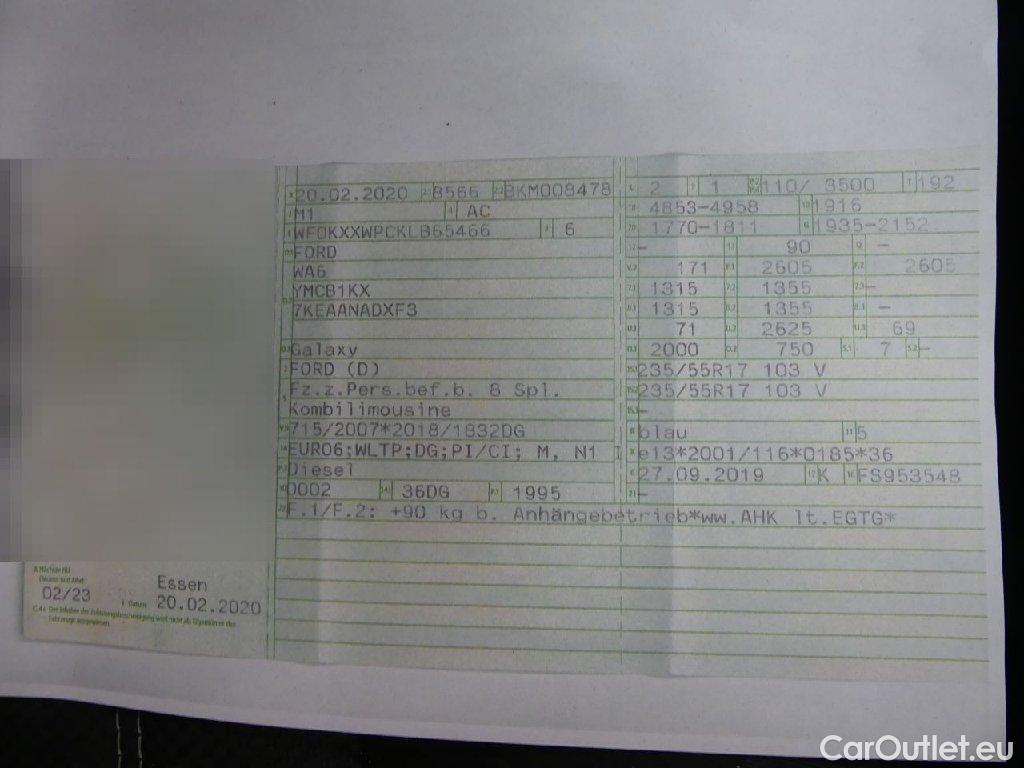 20.02.2020 8566 BKM008478
M1 AC
WF0KXXWPCKLB65466 6
FORD
WA6
YMCB1KX
7KEAANADXF3
Galaxy
FORD (D)
Fz.z.Pers.bef.b. 8 Spl.
Kombilimousine
715/2007*2018/1832DG
EURO6;WLTP;DG;PI/CI; M, N1 I
Diesel
0002 36DG 1995
F.1/F.2: +90 kg b. Anhängebetrieb*ww.AHK lt.EGTG*
2 1 110/ 3500 192
4853-4958 1916
1770-1811 1935-2152
- 90 -
171 2605 2605
1315 1355 -
1315 1355 -
71 2625 69
2000 750 7 -
235/55R17 103 V
235/55R17 103 V
-
blau 5
e13*2001/116*0185*36
27.09.2019 K FS953548
-
Nächste HU
02/23
Essen
Datum 20.02.2020
C.4c Der Inhaber der Zulassungsbescheinigung wird nicht als Eigentümer des
Fahrzeugs ausgewiesen.
CarOutlet.eu